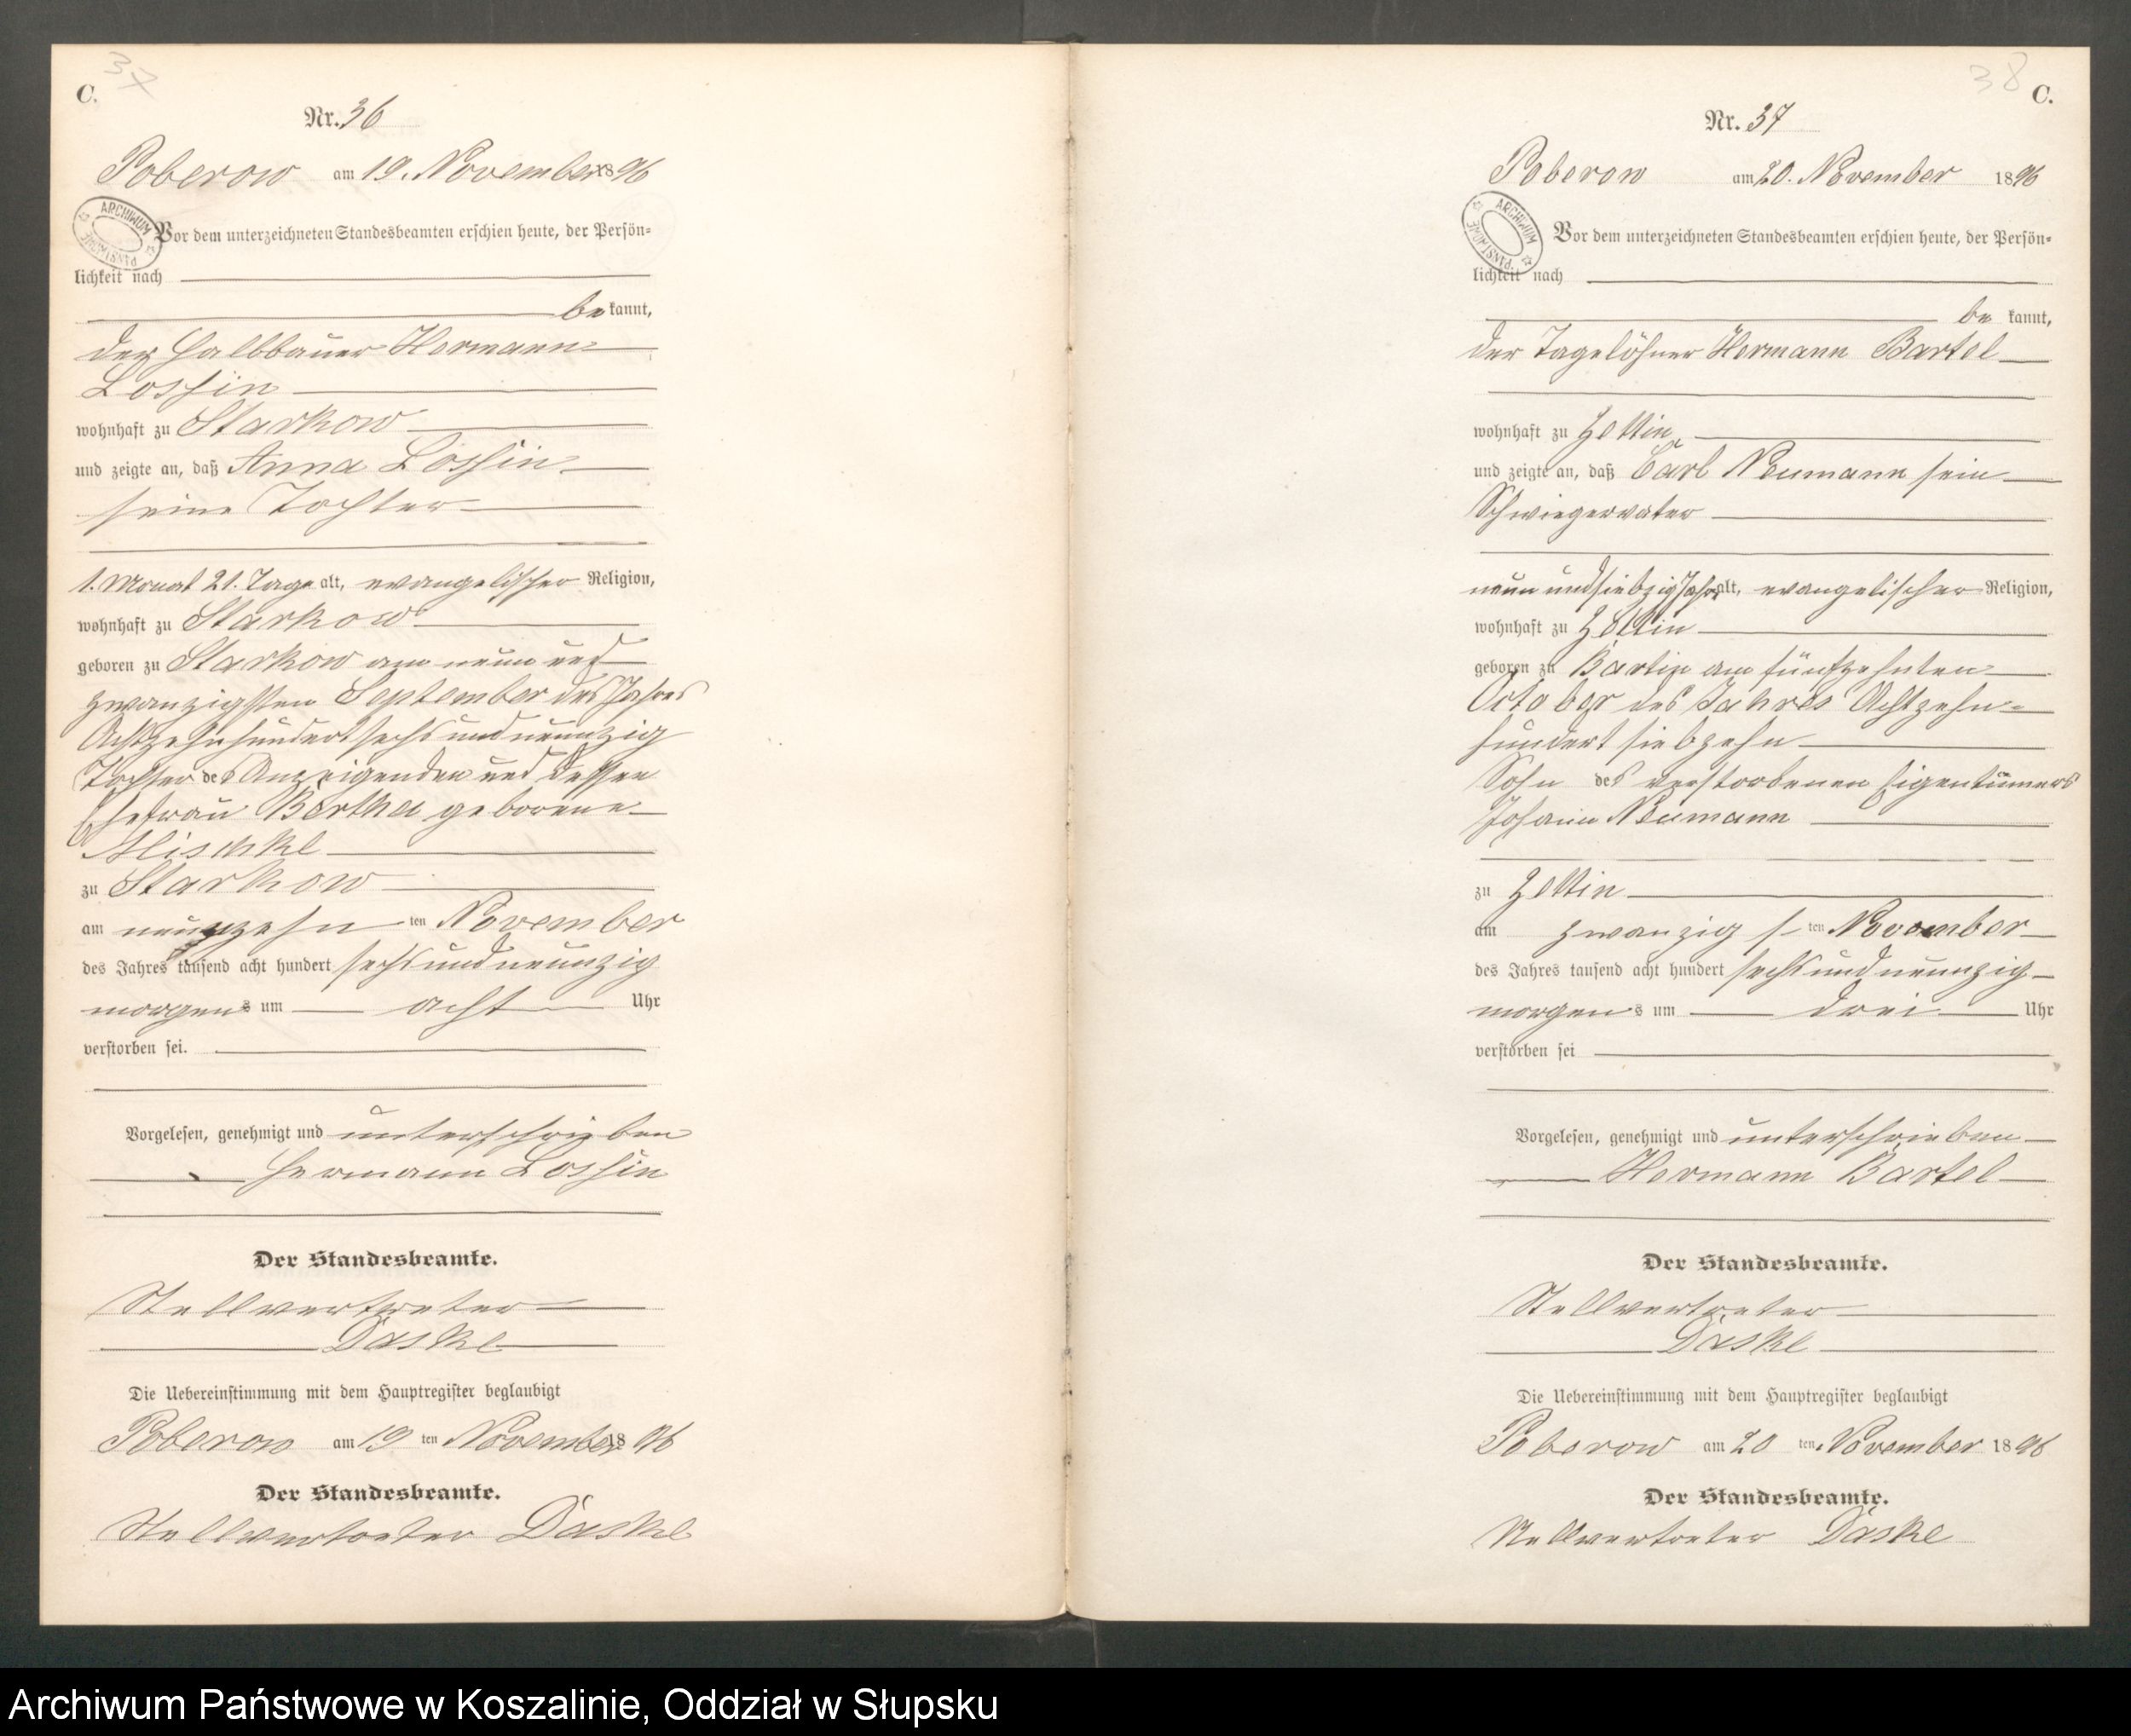 37
C.
Nr. 36
Poberow am 19. November 1896
ARCHIWUM PAŃSTWOWE
Vor dem unterzeichneten Standesbeamten erschien heute, der Persön=
lichkeit nach
bekannt,
der Halbbauer Hermann
Lossin
wohnhaft zu Starkow
und zeigte an, daß Anna Lossin
seine Tochter
1. Monat 21. Tage alt, evangelischer Religion,
wohnhaft zu Starkow
geboren zu Starkow am neun und
zwanzigsten September des Jahres
Achtzehnhundert sechs und neunzig
Tochter des Anzeigenden und dessen
Ehefrau Bertha geborene
Mischke
zu Starkow
am neunzehnten November
des Jahres tausend acht hundert sechs und neunzig
morgens um acht Uhr
verstorben sei.
Vorgelesen, genehmigt und unterschrieben
Hermann Lossin
Der Standesbeamte.
Stellvertreter
Daske
Die Uebereinstimmung mit dem Hauptregister beglaubigt
Poberow am 19 ten November 1896
Der Standesbeamte.
Stellvertreter Daske
38
C.
Nr. 37
Poberow am 20. November 1896
ARCHIWUM PAŃSTWOWE
Vor dem unterzeichneten Standesbeamten erschien heute, der Persön=
lichkeit nach
bekannt,
der Tagelöhner Hermann Bartel
wohnhaft zu Zettin
und zeigte an, daß Carl Neumann sein
Schwiegervater
neun und siebzig Jahre alt, evangelischer Religion,
wohnhaft zu Zettin
geboren zu Bartin am fünfzehnten
October des Jahres Achtzehn=
hundert siebzehn
Sohn des verstorbenen Eigentümers
Johann Neumann
zu Zettin
am zwanzigsten November
des Jahres tausend acht hundert sechs und neunzig
morgens um drei Uhr
verstorben sei
Vorgelesen, genehmigt und unterschrieben
Hermann Bartel
Der Standesbeamte.
Stellvertreter
Daske
Die Uebereinstimmung mit dem Hauptregister beglaubigt
Poberow am 20 ten November 1896
Der Standesbeamte.
Stellvertreter Daske
Archiwum Państwowe w Koszalinie, Oddział w Słupsku